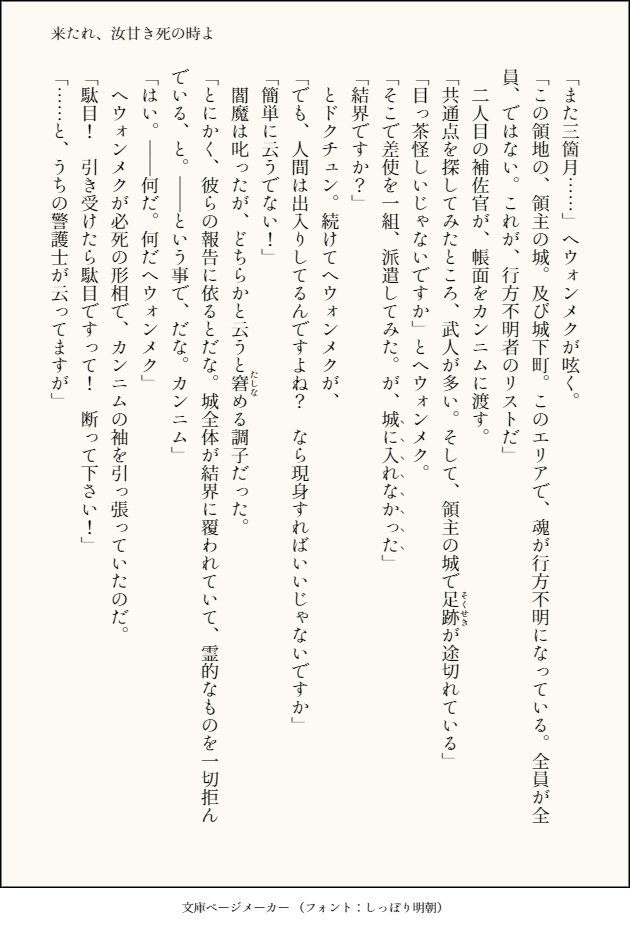 来たれ、汝甘き死の時よ
「また三箇月……」ヘウォンメクが呟く。
「この領地の、領主の城。及び城下町。このエリアで、魂が行方不明になっている。全員が全
員、ではない。これが、行方不明者のリストだ」
二人目の補佐官が、帳面をカンニムに渡す。
「共通点を探してみたところ、武人が多い。そして、領主の城で足跡が途切れている」
そくせき
「目っ茶怪しいじゃないですか」とヘウォンメク。
「そこで差使を一組、派遣してみた。が、城に入れなかった」
「結界ですか？」
とドクチュン。続けてヘウォンメクが、
「でも、人間は出入りしてるんですよね？　なら現身すればいいじゃないですか」
「簡単に云うでない！」
閻魔は叱ったが、どちらかと云うと窘める調子だった。
たしな
「とにかく、彼らの報告に依るとだな。城全体が結界に覆われていて、霊的なものを一切拒ん
でいる、と。――という事で、だな。カンニム」
「はい。――何だ。何だヘウォンメク」
ヘウォンメクが必死の形相で、カンニムの袖を引っ張っていたのだ。
「駄目！　引き受けたら駄目ですって！　断って下さい！」
「……と、うちの警護士が云ってますが」
文庫ページメーカー（フォント：しっぽり明朝）